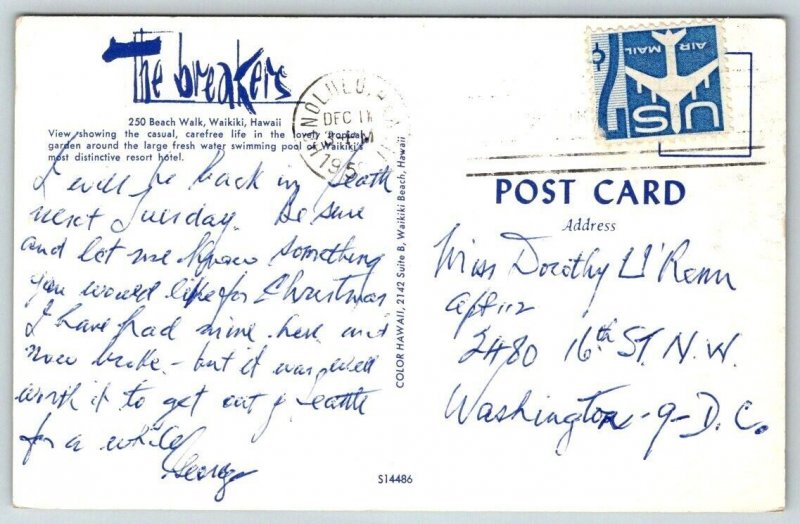 The breakers
250 Beach Walk, Waikiki, Hawaii
View showing the casual, carefree life in the lovely tropical
garden around the large fresh water swimming pool of Waikiki's
most distinctive resort hotel.
I will be back in Seattle
next Tuesday. Be sure
and let me know something
you would like for Christmas
I have had mine here and
now broke - but it was well
worth it to get out of Seattle
for a while
George
COLOR HAWAII, 2142 Suite B, Waikiki Beach, Hawaii
HONOLULU
DEC 11
PM
195
AIR MAIL
¢
US
POST CARD
Address
Miss Dorothy
Apt 112
2480 16th ST. N.W.
Washington - 9 - D.C.
S14486